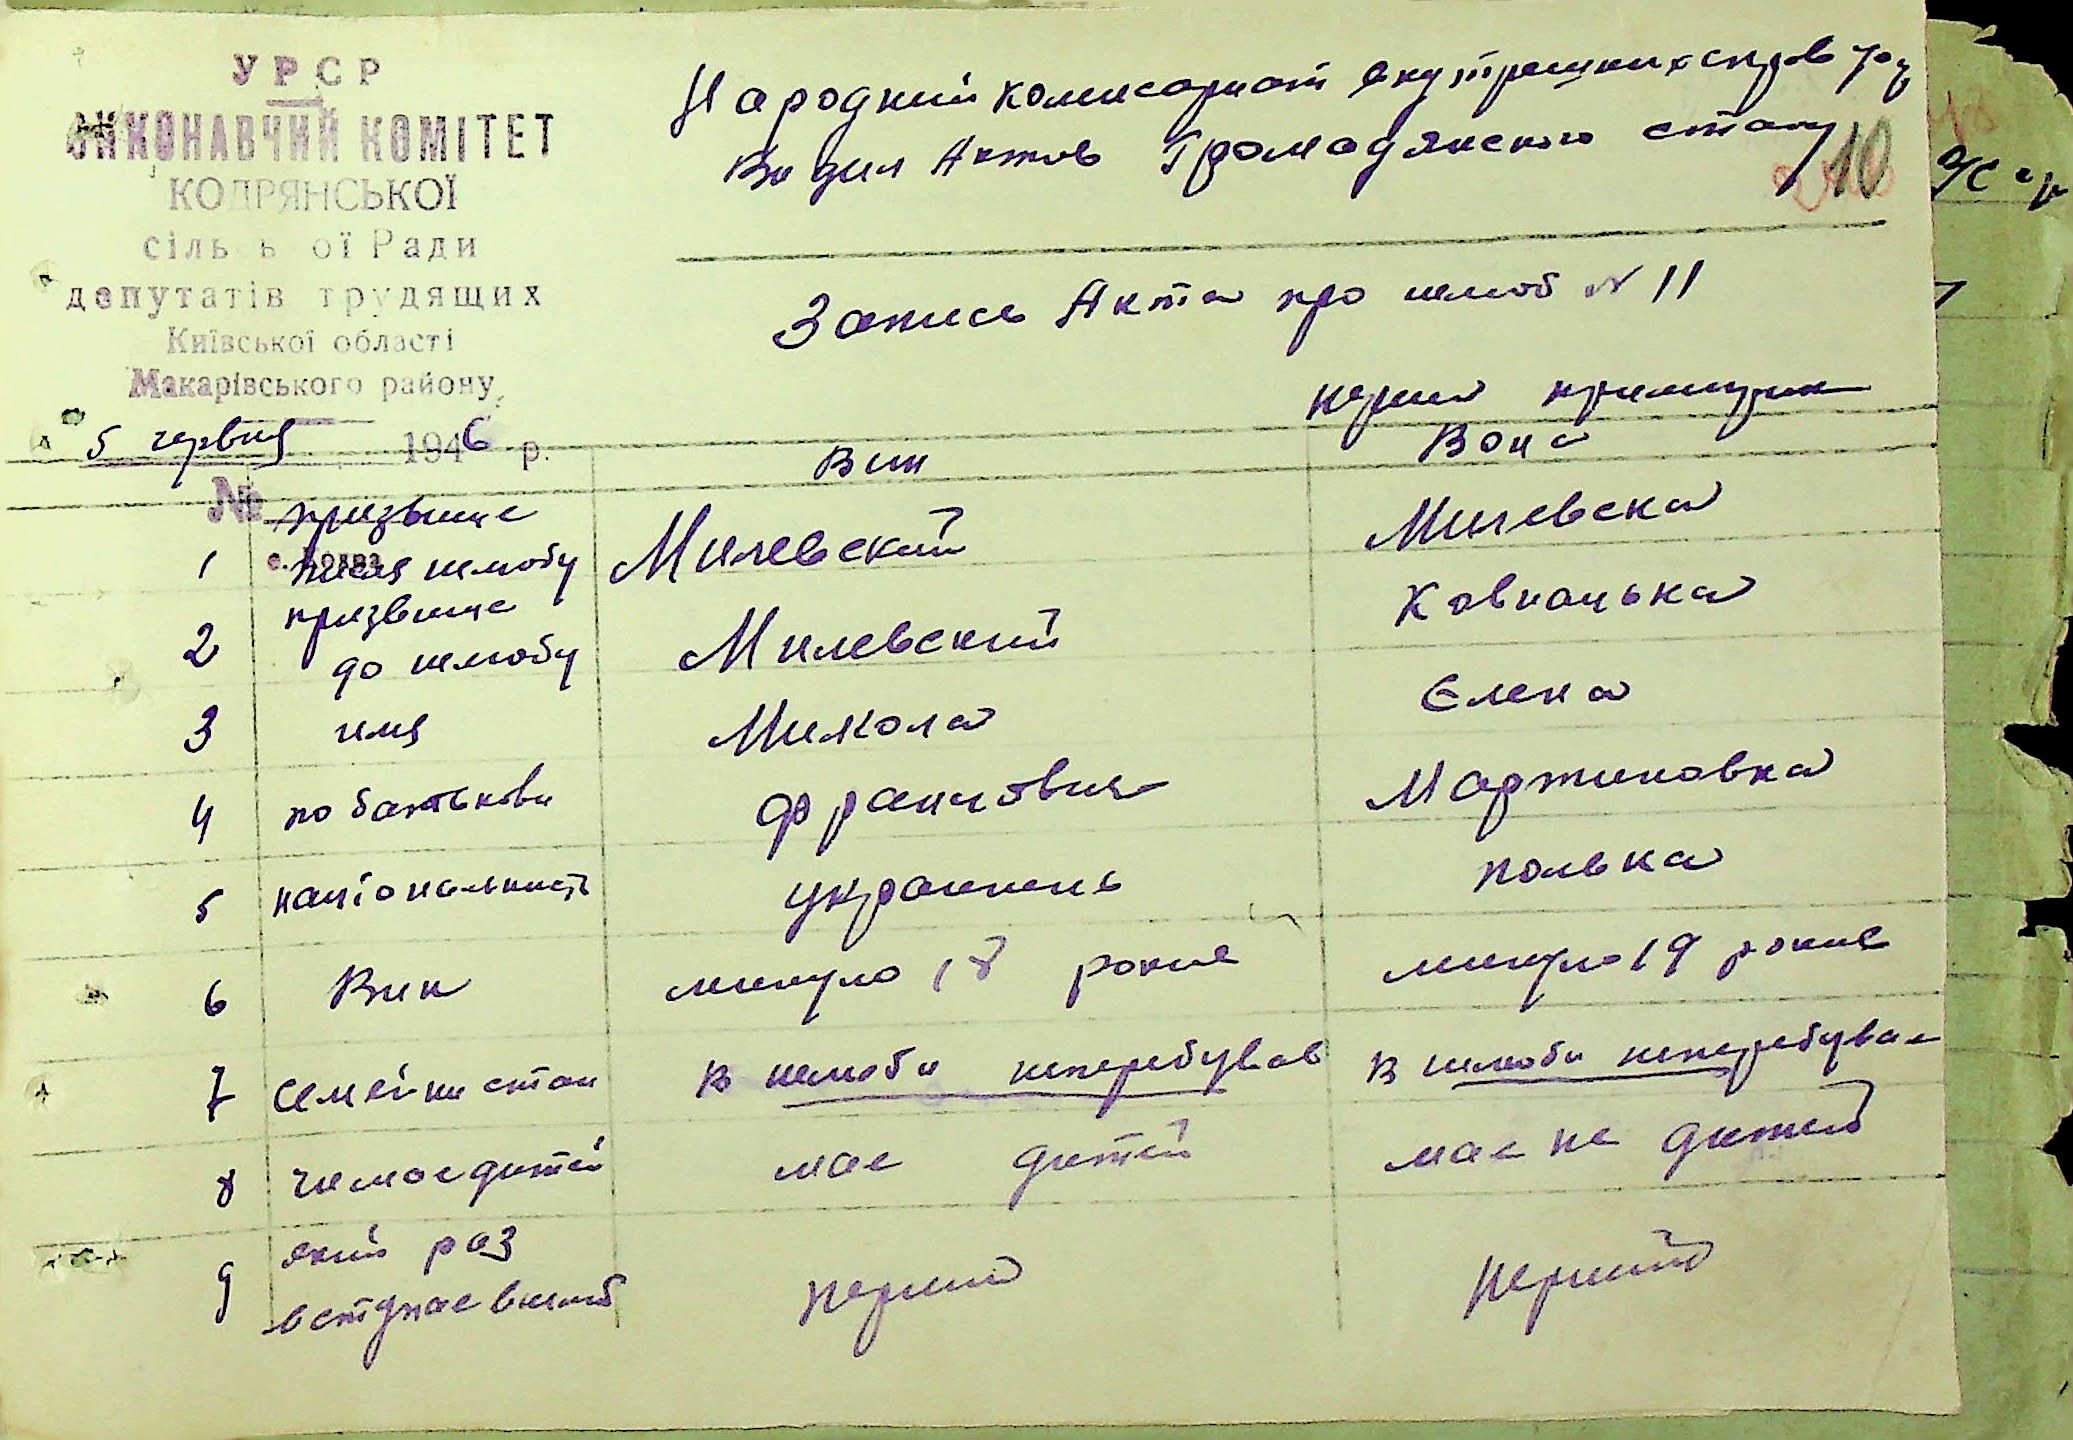 УРСР
ВИКОНАВЧИЙ КОМІТЕТ
КОДРЯНСЬКОЇ
сіль ь ої Ради
депутатів трудящих
Київської області
Макарівського району
5 червня 1946 р.
№
Народний комисариат внутрешних справ
Видил Актов Громадянского стану
10
Запись Акта про шлюб № 11
перший
Вин Вона
1 призвище
писля шлюбу Милевский Милевска
2 призвище
до шлюбу Милевский Ковнацька
3 имя Микола Єлена
4 по батькови Францович Мартиновна
5 національнисть украинець полька
6 Вик минуло 18 рокив минуло 19 рокив
7 семейни стан в шлюби неперебував в шлюби неперебувае
8 чи мае дитей мае дитей мае не дитей
9 який раз
вступае вшлюб перший перший